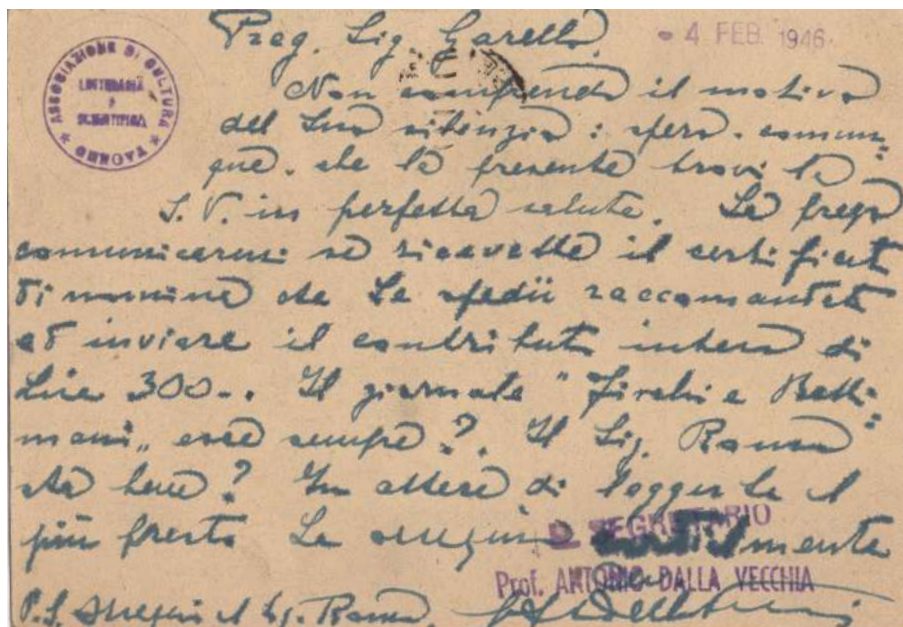 Preg. Sig. Garelli. - 4 FEB. 1946
ASSOCIAZIONE DI CULTURA
LETTERARIA
E
SCIENTIFICA
Non comprendo il motivo
del Suo silenzio: spero comun=
que che la presente trovi la
S. V. in perfetta salute. La prego
comunicarmi se ricevette il certificato
di nomina che Le spedii raccomandata
ed inviare il contributo intero di
Lire 300-. Il giornale "Fischi e Batti=
mani" esce sempre? Il Sig. Roman
sta bene? In attesa di leggerLa al
più presto La ossequio
mente
IL SEGRETARIO
Prof. ANTONIO DALLA VECCHIA
P.S. Ossequi al Sig. Roman.